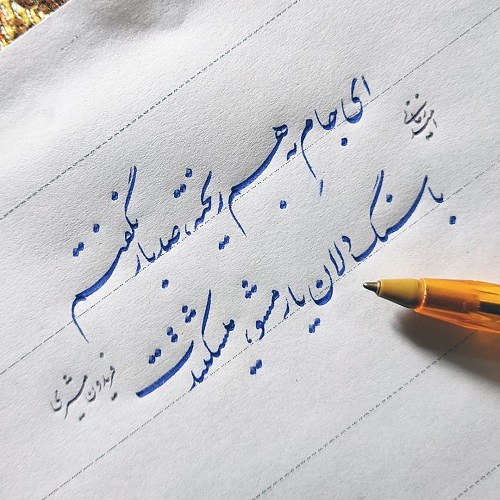 ای جامِ به هم ریخته، صد بار نگفتم
با سنگدلان یار مشو، میشکنندت
فریدون مشیری